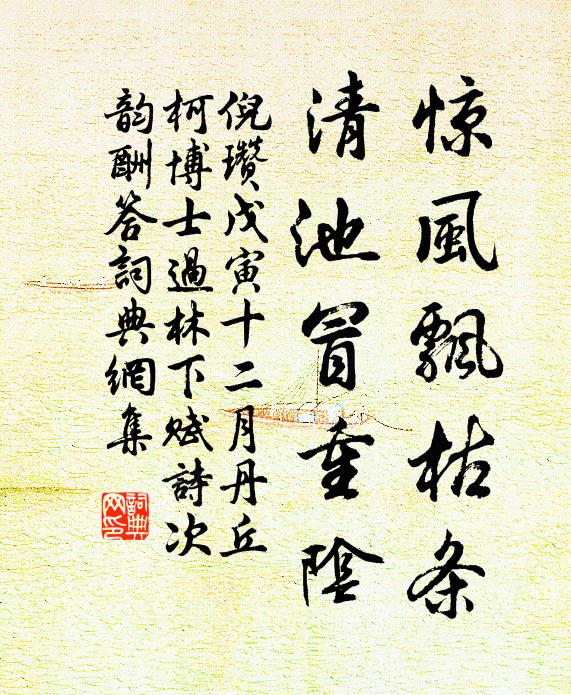 惊風飄枯条
清池冒重陰
倪瓒戊寅十二月丹丘
柯博士過林下赋詩次
韵酬答詞典網集
詞典
网